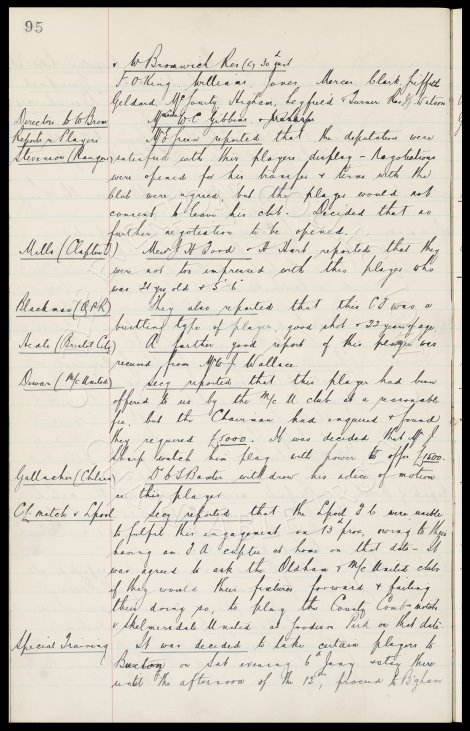 95
v W Bromwich Res (a) 30th inst
F. O. King, Williams, Jones, Mercer, Clark, Griffiths
Geldard, McGourty, Higham, Leyfield & Turner Res. J. Watson
Directors to W Brom
Messrs W. C. Gibbins &
Reports re Players
Mr Green reported that the deputation were
Stevenson (Rangers)
satisfied with this players display - Negotiations
were opened for his transfer & terms with the
Club were agreed, but the player would not
consent to leave his club. Decided that no
further negotiation to be opened.
Mills (Clapton O)
Messrs J. H. Toord & A Hart reported that they
were not too impressed with this player who
was 21 yrs old & 5' 6"
Blackman (Q.P.R)
They also reported that this C.F. was a
bustling type of player, good shot & 22 years of age
Heale (Bristol City)
A further good report of this player was
received from Mr W. J. Wallace
Dewar (M/c United)
Secy reported that this player had been
offered to us by the M/c U. club at a reasonable
fee, but the Chairman had enquired & found
they required £5000. It was decided that Mr J.
Sharp watch him play with power to offer £1500.
Gallacher (Chelsea)
Dr C S Baxter withdrew his notice of motion
re this player
C.L. match v L'pool
Secy reported that the L'pool F.C. were unable
to fulfil this engagement on 13th prox, owing to them
having an F.A. cuptie at home on that date - It
was agreed to ask the Oldham & M/c United clubs
if they would their fixtures forward & failing
their doing so, to play the County Comb. match
v Skelmersdale United at Goodison Park on that date.
Special Training
It was decided to take certain players to
Buxton on Sat evening 6th Jany & stay there
until the afternoon of the 12th, proceed to B'gham